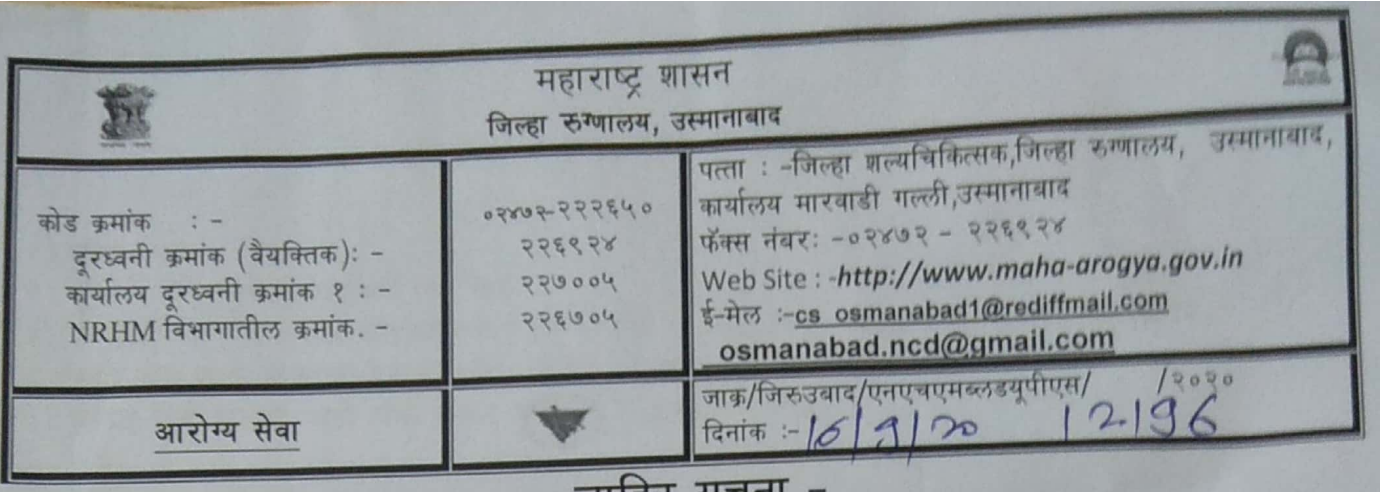 महाराष्ट्र शासन
जिल्हा रुग्णालय, उस्मानाबाद
कोड क्रमांक : - ०२४७२-२२२६५०
दूरध्वनी क्रमांक (वैयक्तिक): - २२६९२४
कार्यालय दूरध्वनी क्रमांक १ : - २२७००५
NRHM विभागातील क्रमांक. - २२६७०५
पत्ता : -जिल्हा शल्यचिकित्सक,जिल्हा रुग्णालय, उस्मानाबाद,
कार्यालय मारवाडी गल्ली,उस्मानाबाद
फॅक्स नंबर: -०२४७२ - २२६९२४
Web Site : -http://www.maha-arogya.gov.in
ई-मेल :-cs_osmanabad1@rediffmail.com
osmanabad.ncd@gmail.com
आरोग्य सेवा
जाक्र/जिरुउबाद/एनएचएमब्लडयूपीएस/ /२०२०
दिनांक :- 16/9/20